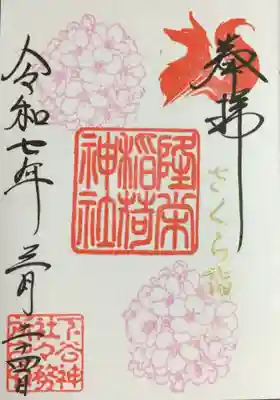 奉拝
さくら詣
隆栄
稲荷
神社
令和七年 三月二十四日
下谷神
社々務